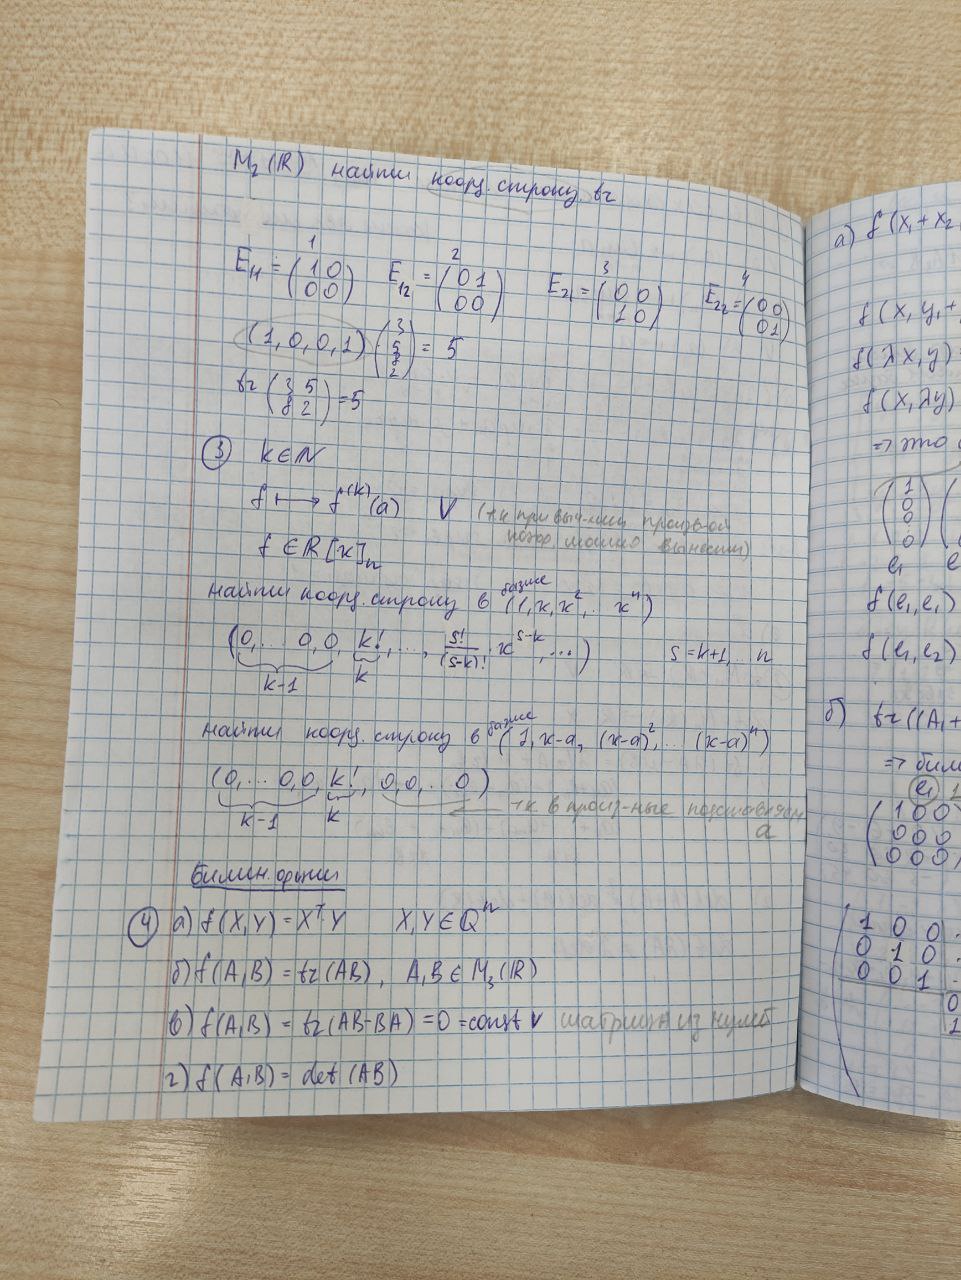 M₂(ℝ) найти коорд. строку tr
1 2 3 4
E₁₁ = (1 0 / 0 0) E₁₂ = (0 1 / 0 0) E₂₁ = (0 0 / 1 0) E₂₂ = (0 0 / 0 1)
(1, 0, 0, 1) (3 / 5 / 8 / 2) = 5
tr (3 5 / 8 2) = 5
③ k ∈ ℕ
f ↦ f⁽ᵏ⁾(a) V (т.к при выч-нии произв-ой
коэф. можно вынести)
f ∈ ℝ[x]ₙ
найти коорд. строку в базисе (1, x, x², .. xⁿ)
(0, .. 0, 0, k!, ..., s!/(s-k)! · x^(s-k), ...) s = k+1, .. n
k-1 k
найти коорд. строку в базисе (1, x-a, (x-a)², ... (x-a)ⁿ)
(0, ... 0, 0, k!, 0, 0, .. 0)
k-1 k т.к в произ-ные подставляем
a
Билин. формы
④ а) f(X,Y) = Xᵀ·Y X, Y ∈ ℚⁿ
б) f(A,B) = tr(AB), A, B ∈ M₃(ℝ)
в) f(A,B) = tr(AB-BA) = 0 = const V матрица из нулей
г) f(A,B) = det(AB)
а) f(x₁ + x₂
f(x, y₁ +
f(λx, y)
f(x, λy)
⇒ это
(1 / 0 / 0 / : / 0) (
e₁ e
f(e₁, e₁)
f(e₁, e₂)
б) tr((A₁ +
⇒ бил
e₁ 1
(1 0 0 / 0 0 0 / 0 0 0)
1 0 0 .
0 1 0 .
0 0 1 .
0
1